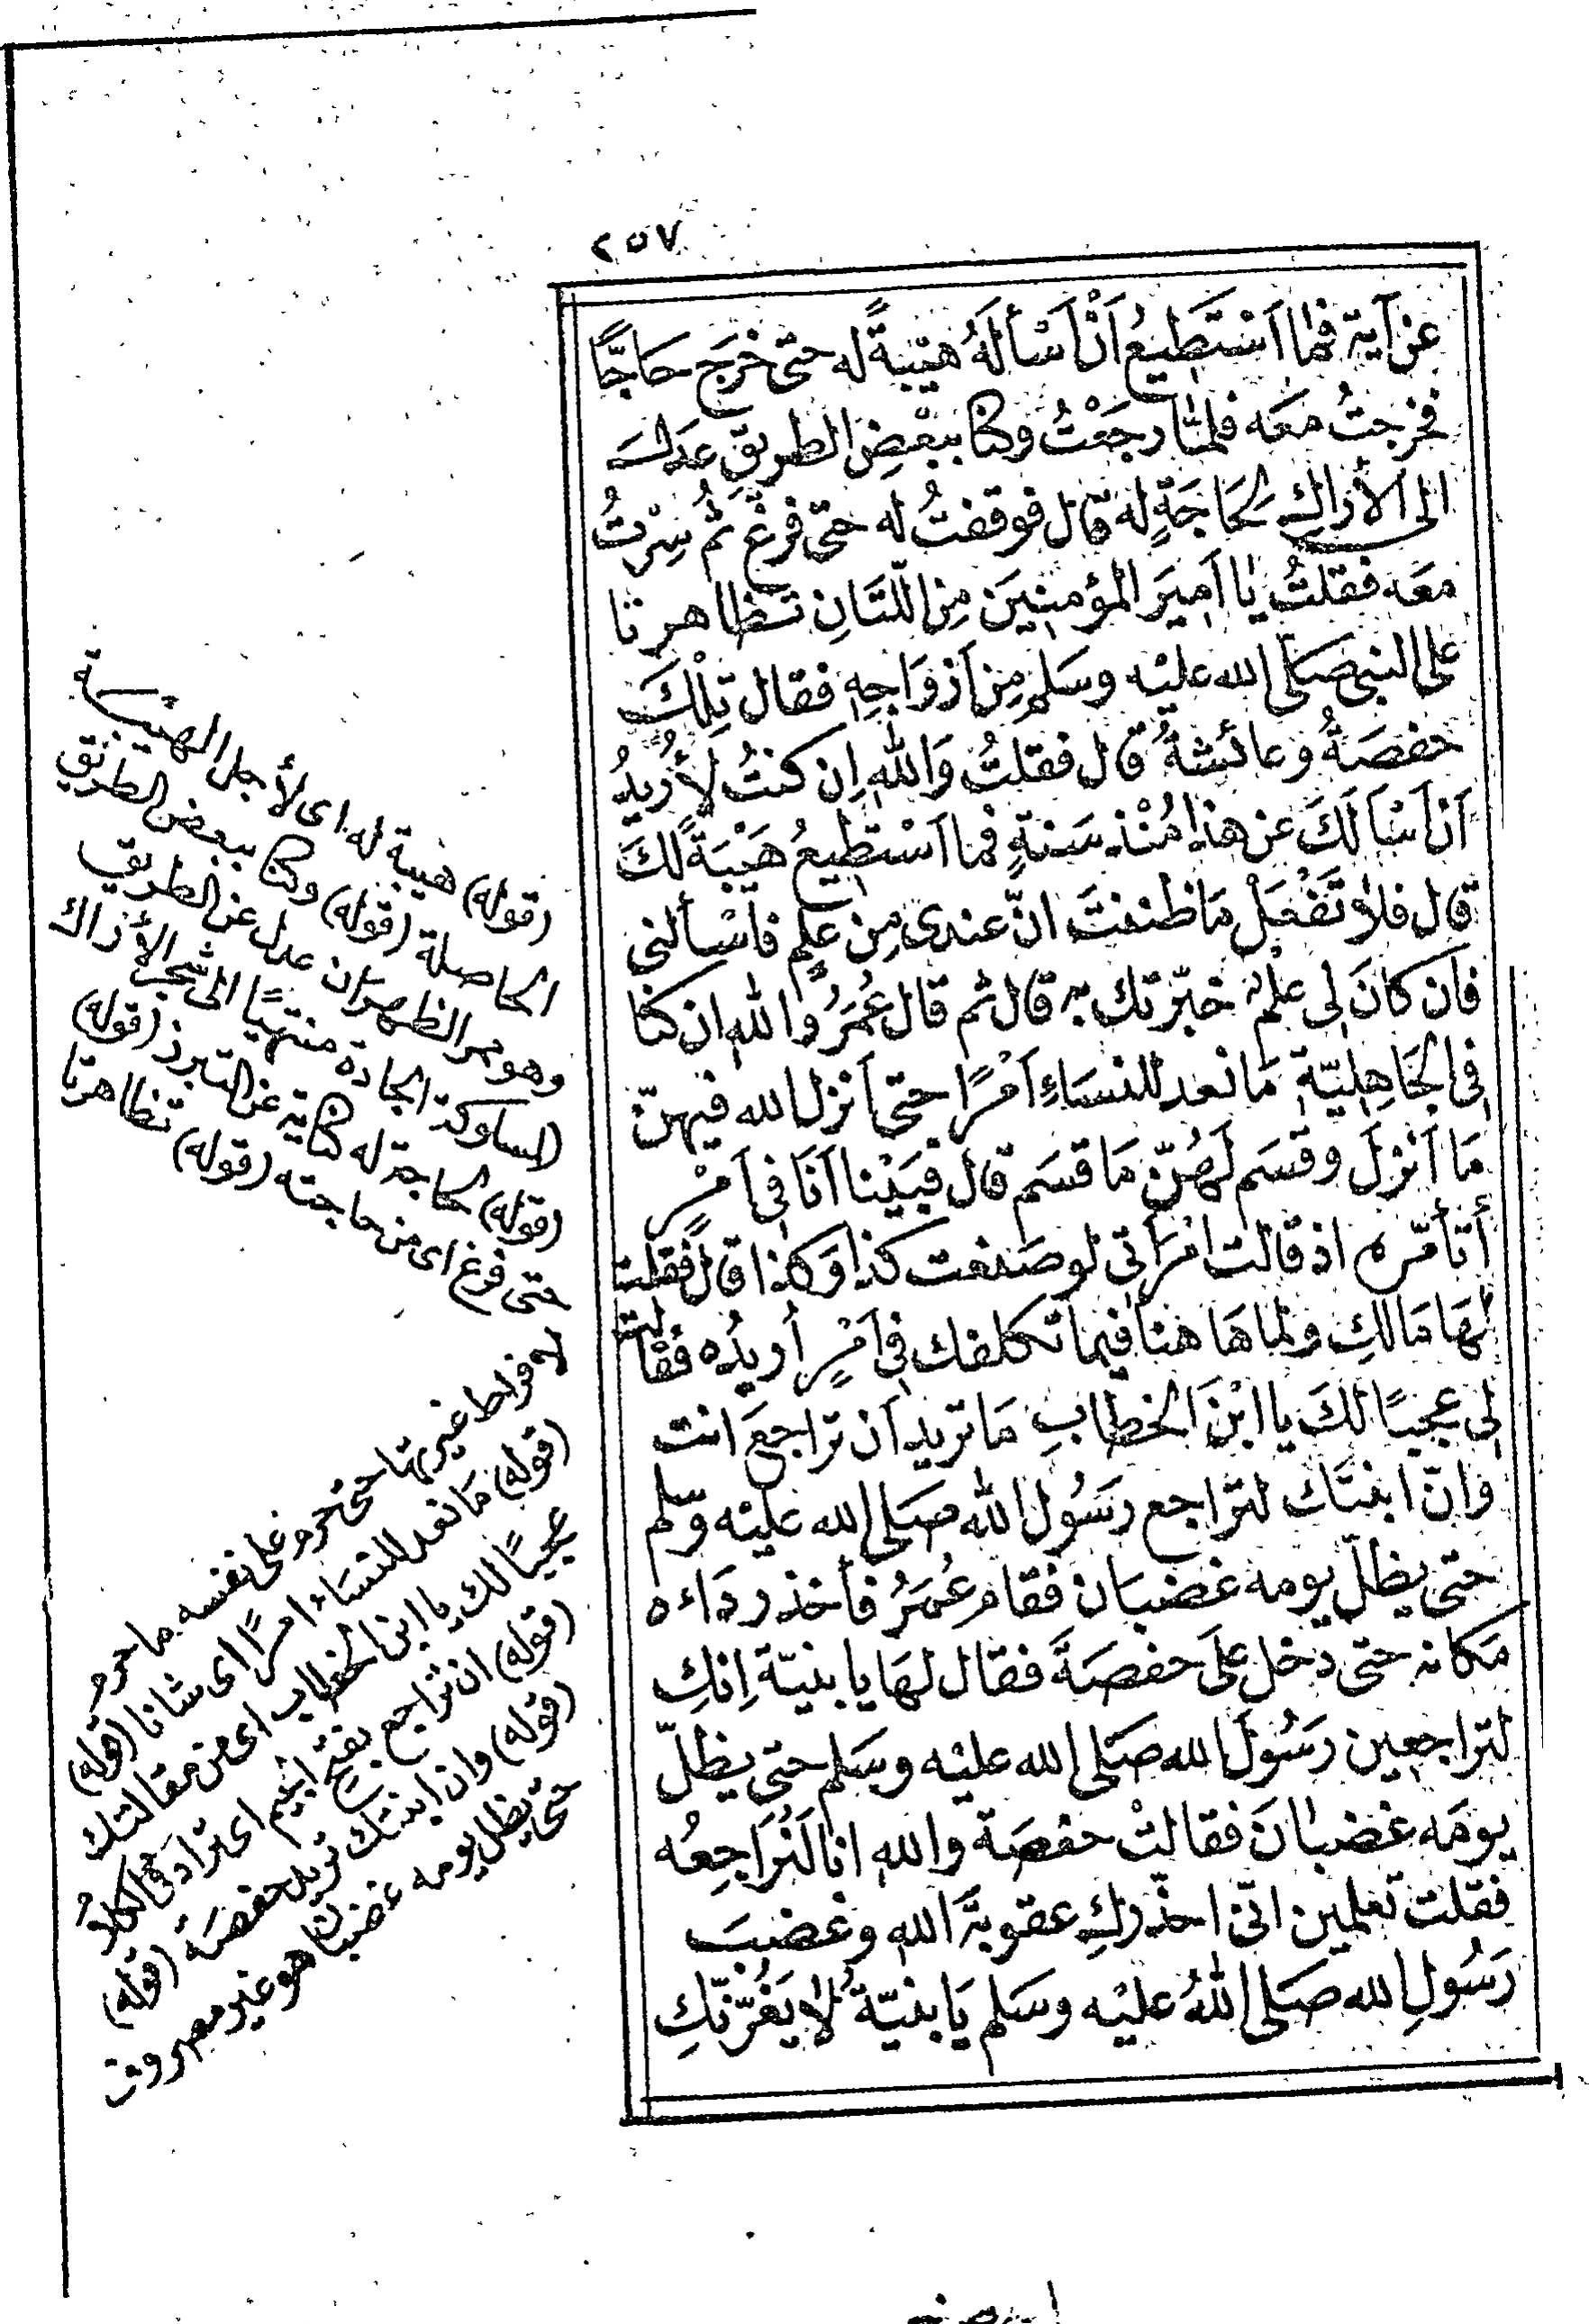 ٢٥٧
عن آية فما اَسْتَطِيعُ اَنْ اَسْألَهُ هَيْبةً له حتى خَرَج حَاجًّا
فخرجتُ معَه فلمّا رجَعْتُ وكنا ببعْضِ الطريقِ عَدَلَ
الى الأَراكِ لحَاجَةٍ له قال فوقفتُ له حتى فرغ ثُم سِرْتُ
معَه فقلتُ يا اَمِيرَ المؤمنِينَ مِن اللّتَانِ تَظاهرتا
على النبى صَلى الله عليْه وسَلم مِن اَزوَاجِهِ فقال تِلْكَ
حفصَةُ وعائشةُ قال فقلتُ وَاللهِ اِن كنتُ لأُرِيدُ
اَن اَسْألَكَ عن هذا مُنْذ سَنةٍ فما اَسْتطِيعُ هَيْبَةً لكَ
قال فلا تَفْعَلْ مَا ظننتَ انّ عندى مِن عِلمٍ فاسْألنى
فان كانَ لى عِلْمٌ خبّرتك به قال ثم قال عُمَرُ والله ان كنا
فى الجَاهِلِيّةِ مَا نعد للنسَاءِ اَمْرًا حتى اَنزل الله فيهنّ
مَا اَنْزلَ وقسَم لَهُنّ مَا قسَم قال فبَيْنا اَنَا فى اَمْرٍ
أتأمّره اذ قالت امْرَأتى لو صَنعت كذا وَكذا قال فقلت
لهَا مَا لكِ ولما هَا هنا فيما تكلفك فى اَمْرٍ اُريدُه فقالت
لى عجبًا لكَ يا ابْنَ الخطابِ مَا تريد اَن تراجعَ انت
وانّ ابنتَك لتراجع رسُول الله صَلى الله عليْه وسّلم
حتى يظلّ يومه غضبَان فقام عُمَرُ فأخذ ردَاءه
مَكانه حتى دَخل عَلى حفصَةَ فقال لهَا يا بنيّة اِنكِ
لتراجعِين رَسُولَ الله صَلى الله عليْه وسَلم حتى يظلّ
يومَه غضبانَ فقالتْ حفصَة واللهِ انا لَنُرَاجِعُه
فقلت تعلمِين انّى احذّركِ عقوبَة اللهِ وغضبَ
رَسُولِ الله صَلى اللهُ عليْه وسَلم يَا بنيّةُ لا يَغُرّنّكِ
(قوله) هيبة له اى لأجل الهيبة
الحاصلة (قوله) وكنا ببعض الطريق
وهو مر الظهران عدل عن الطريق
المسلوكة الجادة منتهيًا الى شجر الأراك
(قوله) لحاجة له كناية عن التبرز (قوله)
حتى فرغ اى من حاجته (قوله) تظاهرتا
لافراط غيرتهما حتى حرم على نفسه ما حرم
(قوله) مَا نعد للنسَاء امرًا اى شانا (قوله)
عجبًا لك يا ابن الخطاب اى من مقالتك
(قوله) ان تراجع بفتح الجيم اى تراد فى الكلام
(قوله) وان ابنتك تريد حفصَة (قوله)
حتى يظل يومه غضبان هو غير مصروف